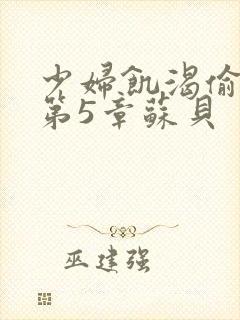 少婦飢渴偷
第5章蘇貝
巫建强